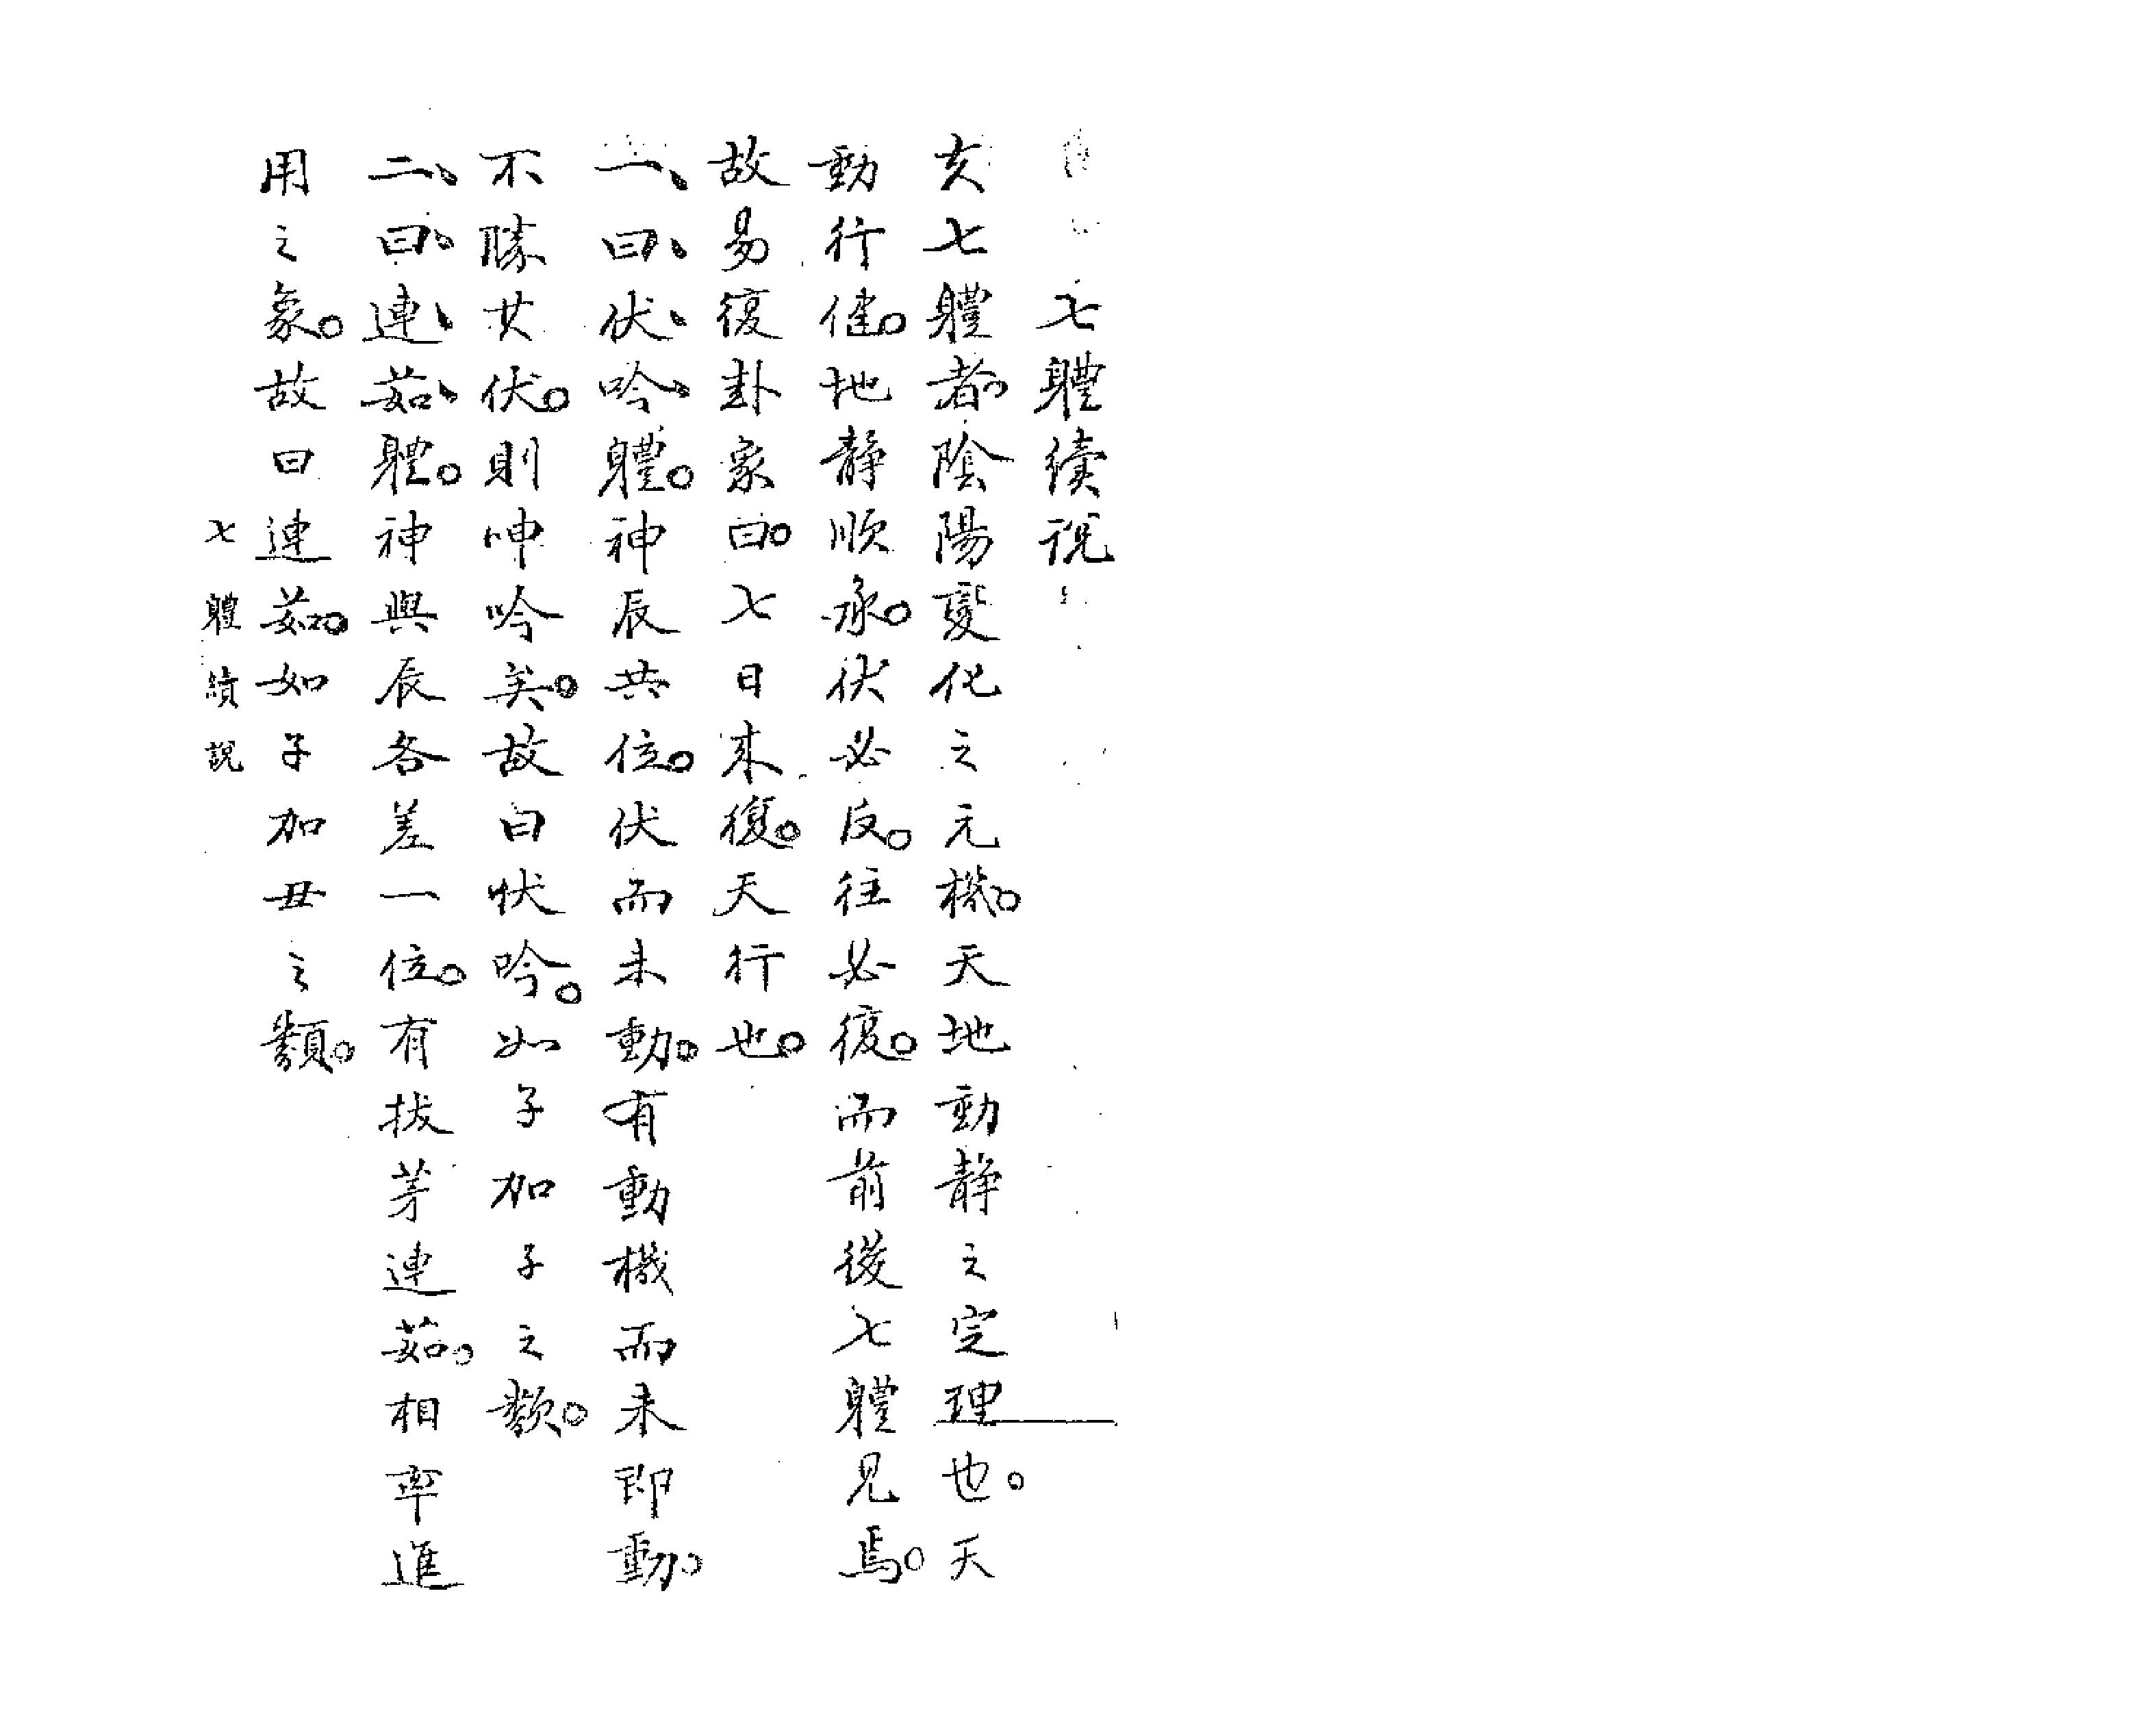 七體續説
夫七體者陰陽變化之元機。天地動靜之定理也。天
動行健。地靜順承。伏必反。往必復。而前後七體見焉。
故易復卦象曰。七日來復。天行也。
一、曰、伏、吟、體。神辰共位。伏而未動。有動機而未即動。
不勝其伏。則呻吟矣。故曰伏吟。如子加子之類。
二、曰、連、茹、體。神與辰各差一位。有拔茅連茹。相率進
用之象。故曰連茹。如子加丑之類。
七體續說